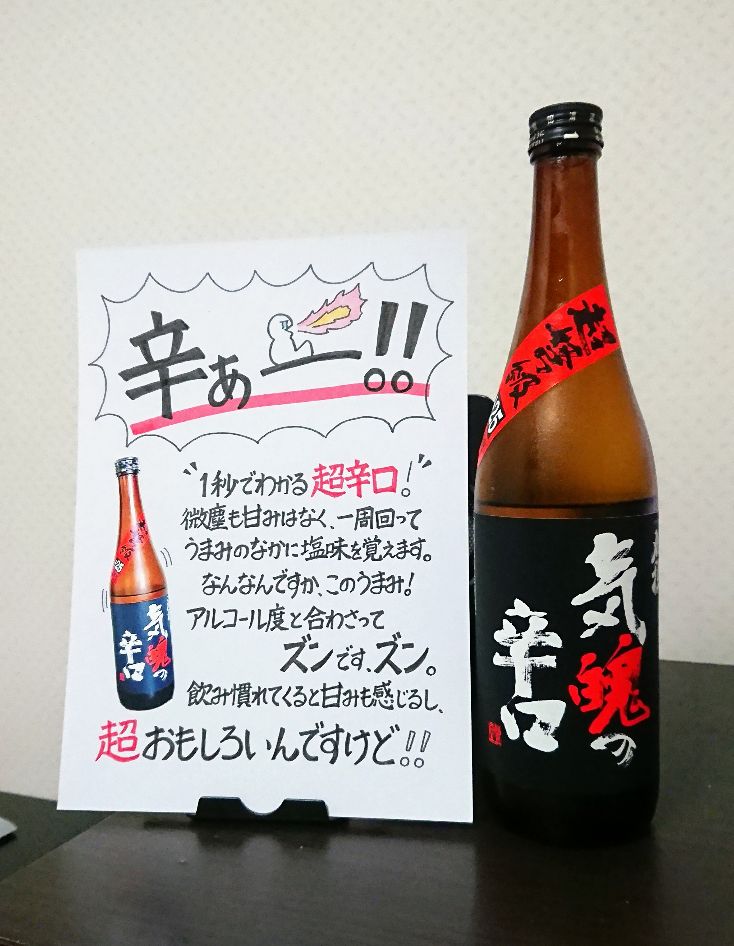 辛ぁー!!
"1秒でわかる超辛口!"
微塵も甘みはなく、一周回って
うまみのなかに塩味を覚えます。
なんなんですか、このうまみ!
アルコール度と合わさって
ズンです、ズン。
飲み慣れてくると甘みも感じるし、
超おもしろいんですけど!!
気魄の
辛口
気魄の
辛口